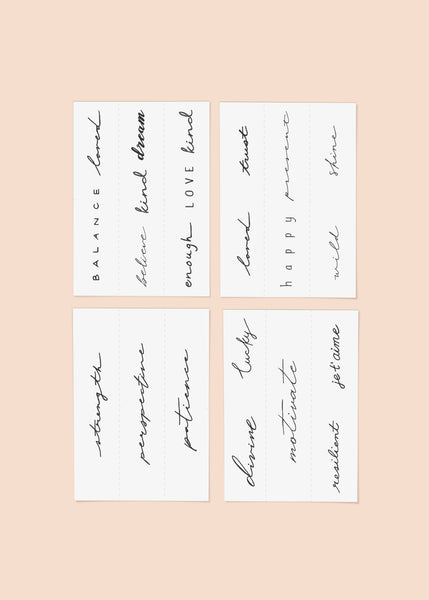 BALANCE loved
believe kind dream
enough LOVE kind
loved trust
happy present
wild shine
strength
perspective
patience
divine lucky
motivate
resilient je t'aime